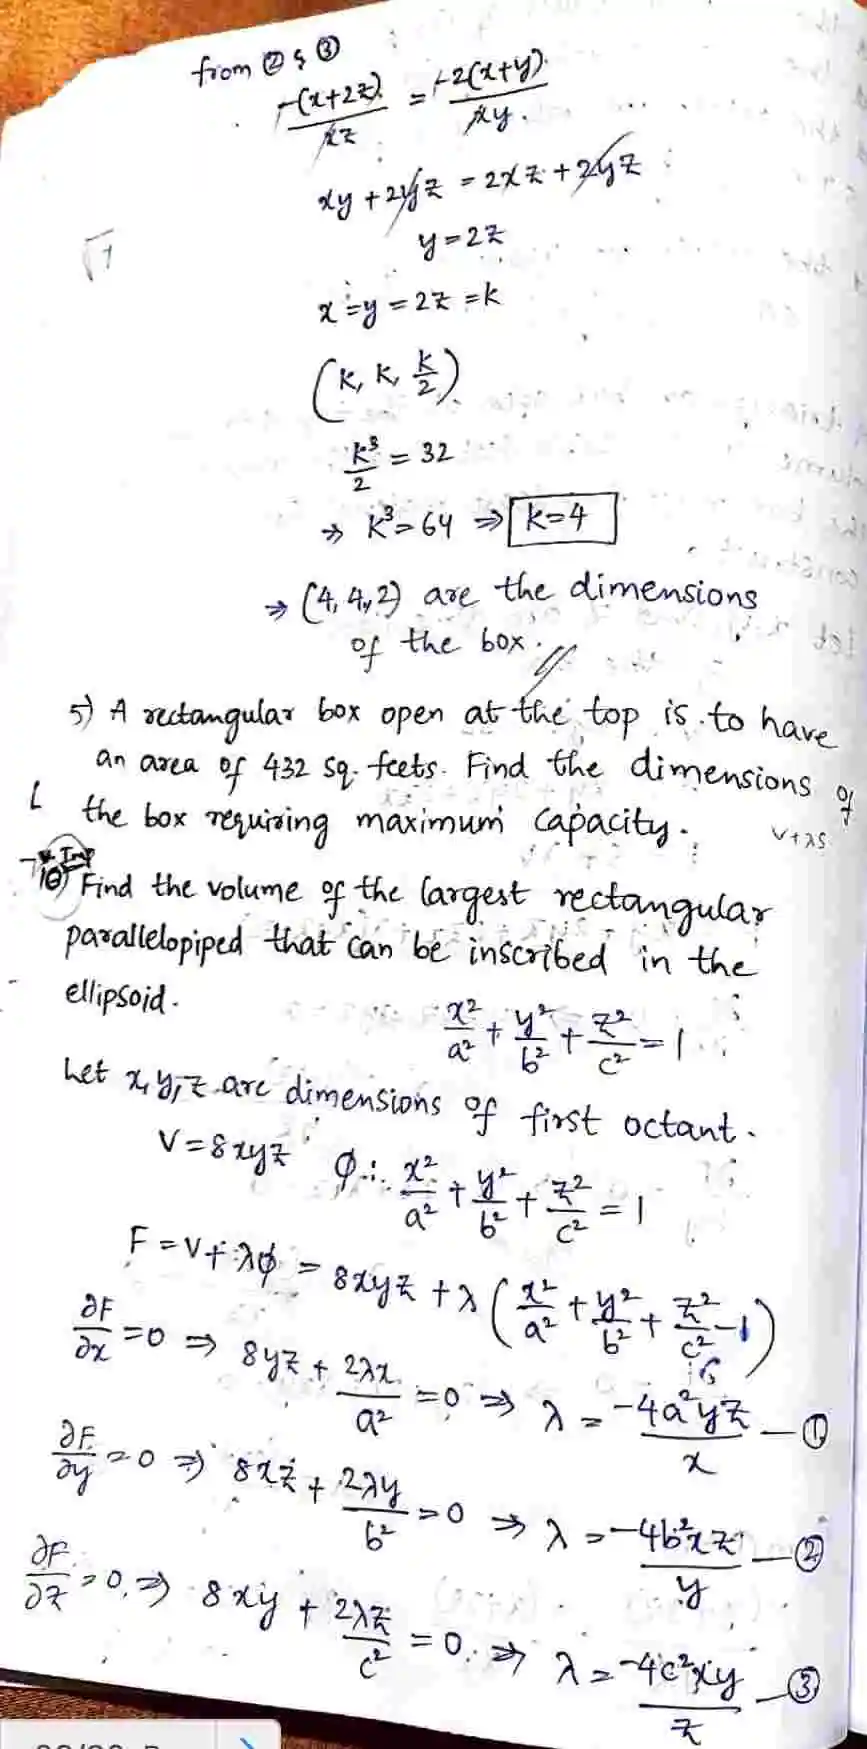 from ② & ③
-(x+2z)/xz = -2(x+y)/xy.
xy + 2yz = 2xz + 2yz
y = 2z
x = y = 2z = k
(k, k, k/2)
k³/2 = 32
⇒ k³ = 64 ⇒ k=4
⇒ (4, 4, 2) are the dimensions
of the box.
5) A rectangular box open at the top is to have
an area of 432 sq. feets. Find the dimensions of
the box requiring maximum capacity.
V+λS
Imp
10) Find the volume of the largest rectangular
parallelopiped that can be inscribed in the
ellipsoid.
x²/a² + y²/b² + z²/c² = 1
Let x, y, z are dimensions of first octant.
V = 8xyz φ: x²/a² + y²/b² + z²/c² = 1
F = V + λφ = 8xyz + λ(x²/a² + y²/b² + z²/c² - 1)
∂F/∂x = 0 ⇒ 8yz + 2λx/a² = 0 ⇒ λ = -4a²yz/x — ①
∂F/∂y = 0 ⇒ 8xz + 2λy/b² = 0 ⇒ λ = -4b²xz/y — ②
∂F/∂z = 0. ⇒ 8xy + 2λz/c² = 0. ⇒ λ = -4c²xy/z — ③